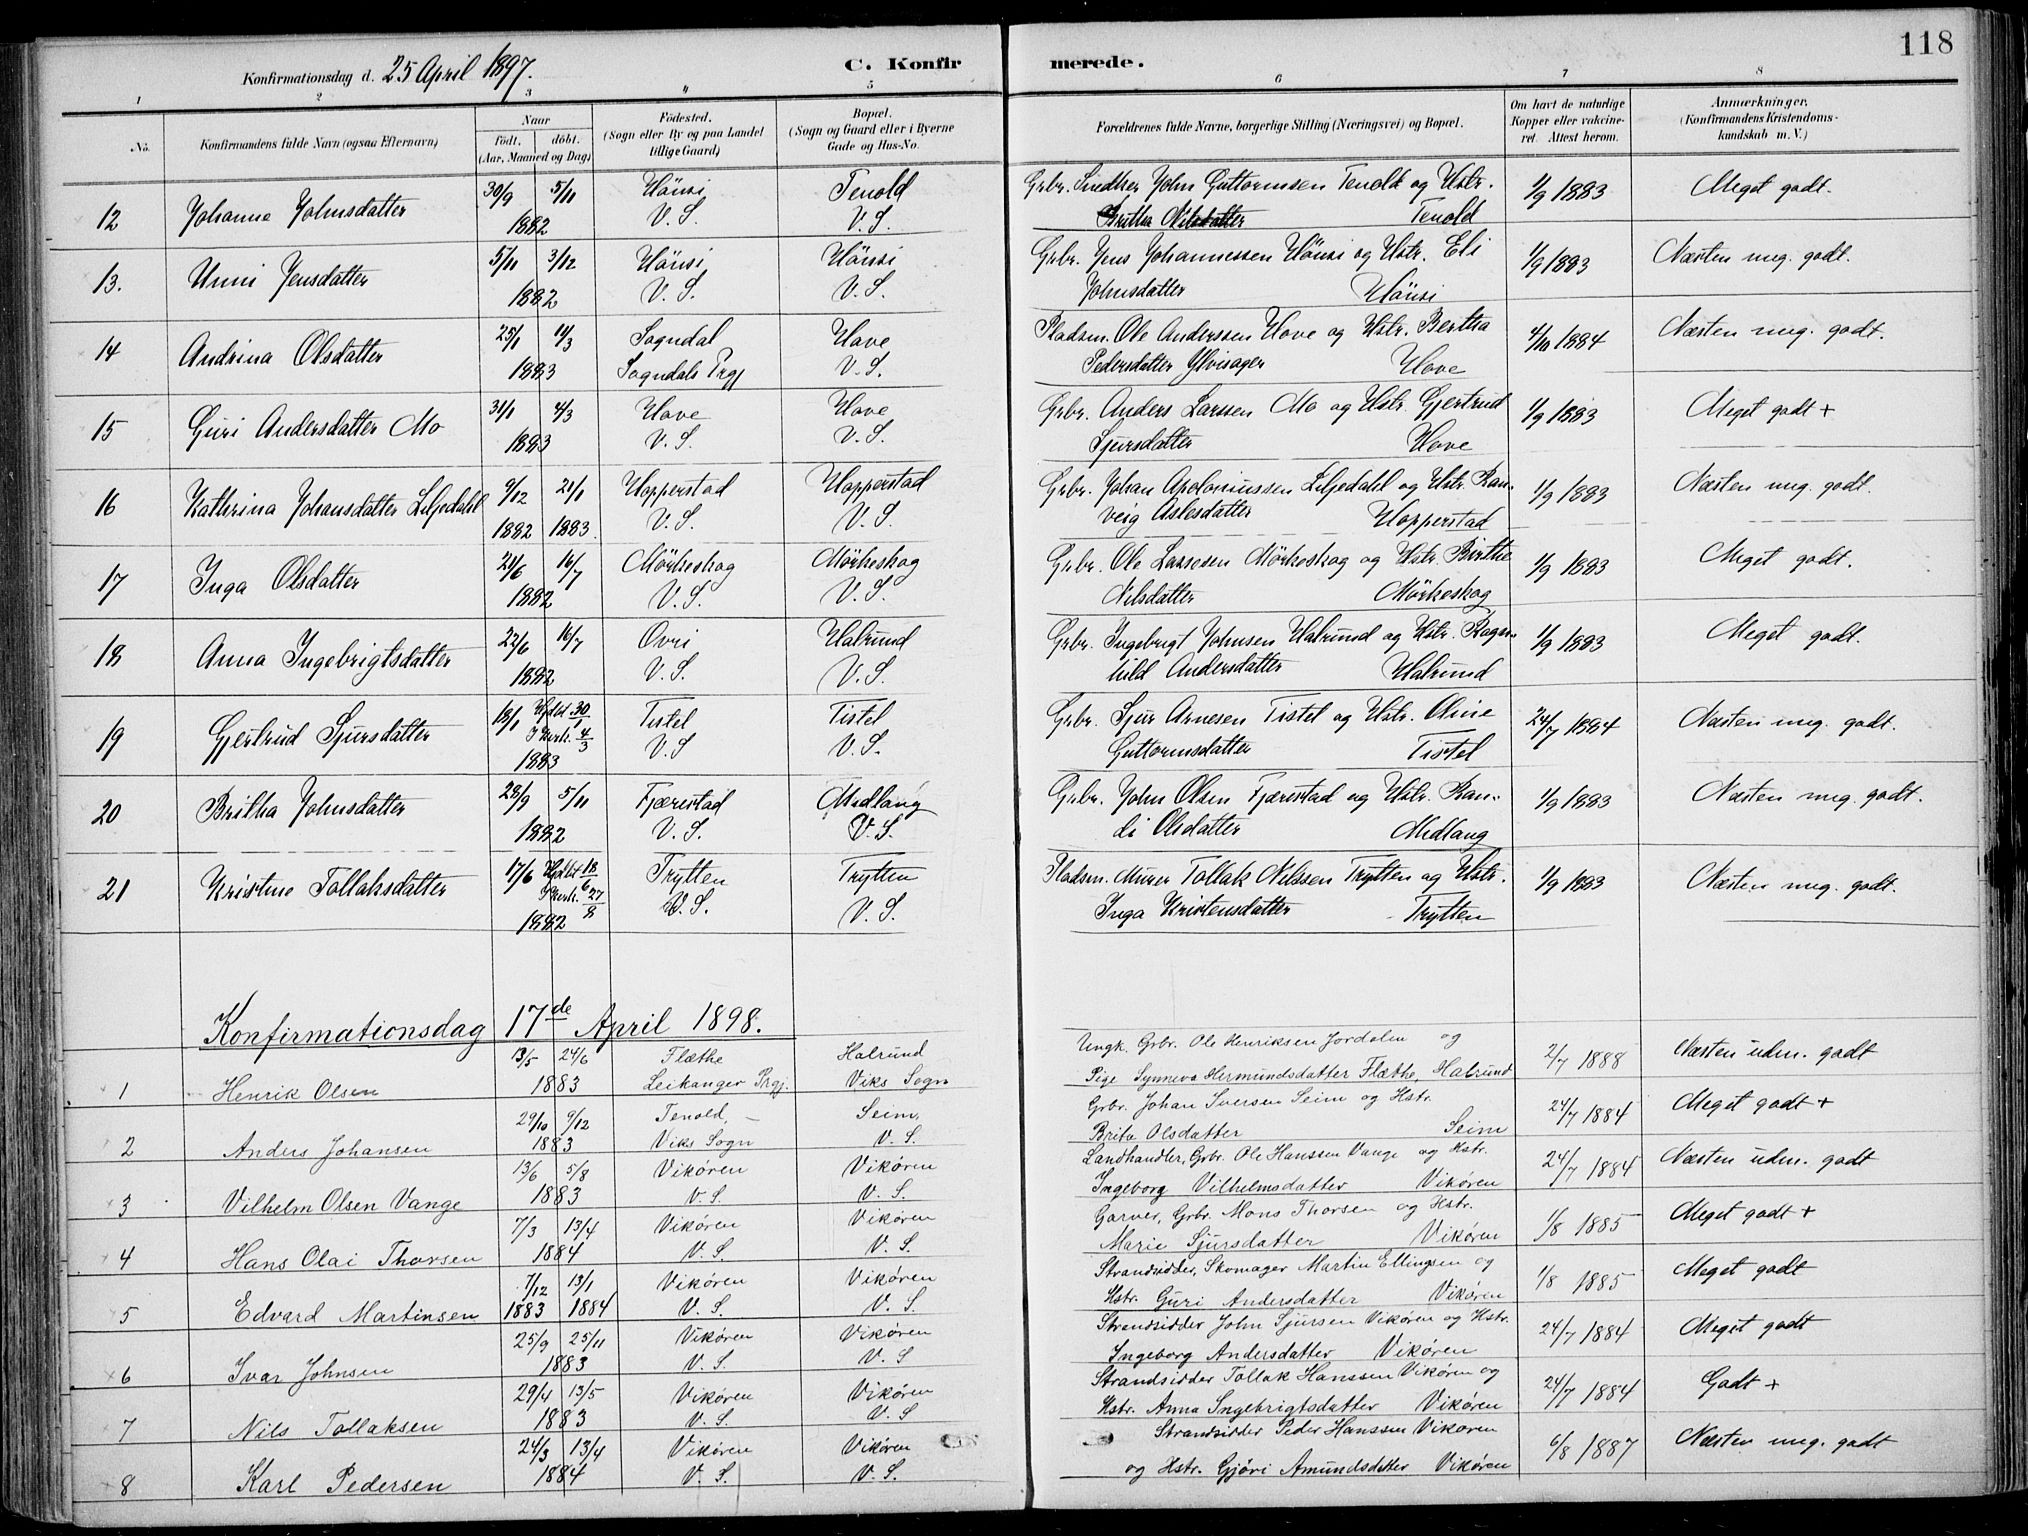 118
Konfirmationsdag d. 25 April 1897.
C. Konfirmerede.
1 2 3 4 5 6 7 8
No. Konfirmandens fulde Navn (ogsaa Efternavn)
Naar født, døbt. (Aar, Maaned og Dag)
Fødested. (Sogn eller By og paa Landet tillige Gaard)
Bopæl. (Sogn og Gaard eller i Byerne Gade og Hus-No.
Forældrenes fulde Navne, borgerlige Stilling (Næringsvei) og Bopæl.
Om havt de naturlige Kopper eller vakcineret. Attest herom.
Anmærkninger. (Konfirmandens Kristendomskundskab m. V.)
12 Johanne Johnsdatter 30/9 5/11 1882 Hönsi V. S. Tenold V. S. Grbr. Snedker John Guttormsen Tenold og Hstr. 1/9 1883 Meget godt.
Britha Nilsdatter Tenold
13. Unni Jensdatter 5/11 3/12 1882 Hönsi V. S. Hönsi V. S. Grbr. Jens Johannessen Hönsi og Hstr. Eli 1/9 1883 Næsten meg. godt.
Johnsdatter Hönsi
14 Andrina Olsdatter 25/1 11/3 1883 Sogndal Sogndals Prgj Hove V. S. Pladsm. Ole Anderssen Hove og Hstr. Bertha 4/10 1884 Næsten meg. godt.
Pedersdatter Ylvisager Hove
15 Guri Andersdatter Mo 31/1 4/3 1883 Hove V. S. Hove V. S. Grbr. Anders Larssen Mo og Hstr. Gjertrud 1/9 1883 Meget godt +
Sjursdatter Hove
16 Kathrina Johansdatter Liljedahl 9/12 1882 21/1 1883. Hopperstad V. S. Hopperstad V. S. Grbr. Johan Apoloniussen Liljedahl og Hstr. Ran- 1/9 1883 Næsten meg. godt.
veig Aslesdatter Hopperstad
17 Inga Olsdatter 21/6 16/7 1882 Mörkeskog V. S. Mörkeskog V. S. Grbr. Ole Lassesen Mörkeskog og Hstr. Birthe 1/9 1883 Meget godt.
Nilsdatter Mörkeskog
18 Anna Ingebrigtsdatter 22/6 16/7 1882 Ovri V. S. Halrund V. S. Grbr. Ingebrigt Johnsen Halrund og Hstr. Ragn- 1/9 1883 Meget godt.
hild Andersdatter Halrund
19 Gjertrud Sjursdatter 18/1 Hjdbt 30/1 I Kirk. 4/3 1883 Tistel V. S Tistel V. S. Grbr. Sjur Arnesen Tistel og Hstr. Oline 24/7 1884 Næsten meg. godt.
Guttormsdatter Tistel
20 Britha Johnsdatter 28/9 5/11 1882 Fjærestad V. S. Midlang V. S. Grbr. John Olsen Fjærestad og Hstr. Ran- 1/9 1883 Næsten meg. godt.
di Olsdatter Midlang
21 Kristine Tollaksdatter 17/6 Hjdbt 18/6 I Kirk. 27/8 1882 Trytten V. S. Trytten V. S. Pladsm. Murer Tollak Nilssen Trytten og Hstr. 1/9 1883 Næsten meg. godt.
Inga Kristensdatter Trytten
Konfirmationsdag 17de April 1898.
1 Henrik Olsen 13/5 24/6 1883 Flæthe Leikanger Prgj. Halrund Viks Sogn Ungk. Grbr. Ole Henriksen Jordalen og 2/7 1888 Næsten udm. godt
Pige Synneva Hermundsdatter Flæthe, Halrund
2 Anders Johansen 29/10 9/12 1883 Tenold, Viks Sogn Seim, V. S. Grbr. Johan Iversen Seim og Hstr. 24/7 1884 Meget godt +
Brita Olsdatter Seim
3 Vilhelm Olsen Vange 13/6 5/8 1883 Vikören V. S. Vikören V. S. Landhandler, Grbr. Ole Hanssen Vange og Hstr. 24/7 1884 Næsten udm. godt
Ingeborg Vilhelmsdatter Vikören
4 Hans Olai Thorsen 7/3 13/4 1884 Vikören V. S. Vikören V. S. Garver, Grbr. Mons Thorsen og Hstr. 1/8 1885 Meget godt +
Marie Sjursdatter Vikören
5 Edvard Martinsen 7/12 1883 13/1 1884 Vikören V. S. Vikören V. S. Strandsidder, Skomager Martin Ellingsen og 1/8 1885 Meget godt
Hstr. Guri Andersdatter Vikören
6 Ivar Johnsen 25/9 25/11 1883 Vikören V. S. Vikören V. S Strandsidder John Sjursen Vikören og Hstr. 24/7 1884 Meget godt
Ingeborg Andersdatter Vikören
7 Nils Tollaksen 29/4 13/5 1883 Vikören V. S. Vikören V. S Strandsidder Tollak Hanssen Vikören og 24/7 1884 Godt +
Hstr. Anna Ingebrigtsdatter Vikören
8 Karl Pedersen 24/3 13/4 1884 Vikören V. S. Vikören V. S. Strandsidder Peder Hanssen Vikoren 6/8 1887 Næsten meg. godt
og Hstr. Gjöri Amundsdatter Vikören